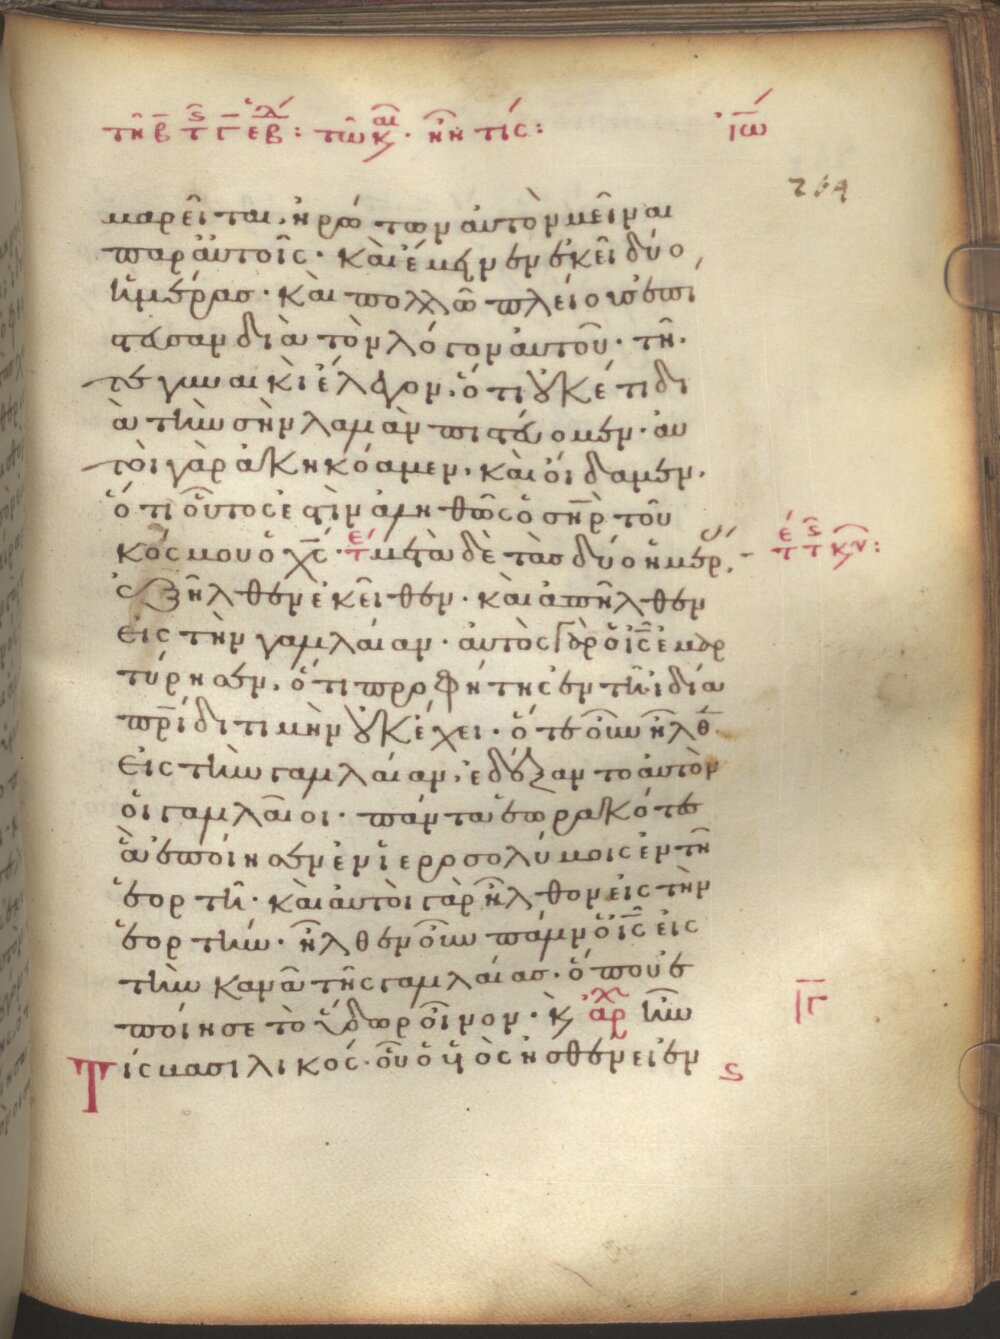 τῆ β τ ς γ ε β : τῶ κ αι · ἦν τίς : ἰω
264
μαρεῖται· ἠρώτων αὐτὸν μεῖναι
παρ αὐτοῖς· καὶ ἔμεινεν ἐκεῖ δύο
ἡμέρας· καὶ πολλῶ πλείους ἐπί
στευσαν διὰ τὸν λόγον αὐτοῦ· τῆ
τε γυναικὶ ἔλεγον, ὅτι οὐκέτι δι
ὰ τὴν σὴν λαλιὰν πιστεύομεν· αὐ
τοὶ γὰρ ἀκηκόαμεν, καὶ οἴδαμεν,
ὅτι οὗτος ἐστὶν ἀληθῶς ὁ σηρ τοῦ
κόσμου ὁ χς· μετὰ δὲ τὰς δύο ἡμέρ
ἐξῆλθεν ἐκεῖθεν· καὶ ἀπῆλθεν
εἰς τὴν γαλιλαίαν· αὐτὸς γὰρ ὁ ις ἐμαρ
τύρησεν, ὅτι προφήτης ἐν τῆ ἰδία
πρίδι τιμὴν οὐκ ἔχει· ὅτε οὖν ἦλθ
εἰς τὴν γαλιλαίαν, ἐδέξαντο αὐτὸν
οἱ γαλιλαῖοι· πάντα ἑωρακότες
ἃ ἐποίησεν ἐν ἱεροσολύμοις ἐν τῆ
ἑορτῆ· καὶ αὐτοὶ γὰρ ἦλθον εἰς τὴν
ἑορτήν· ἦλθεν οὖν πάλιν ὁ ις εἰς
τὴν κανᾶ τῆς γαλιλαίας· ὅπου ἐ
ποίησε τὸ ὕδωρ οἶνον· κ ἀρχ ἦν
τίς βασιλικός· οὗ ὁ υἱὸς ἠσθένει ἐν